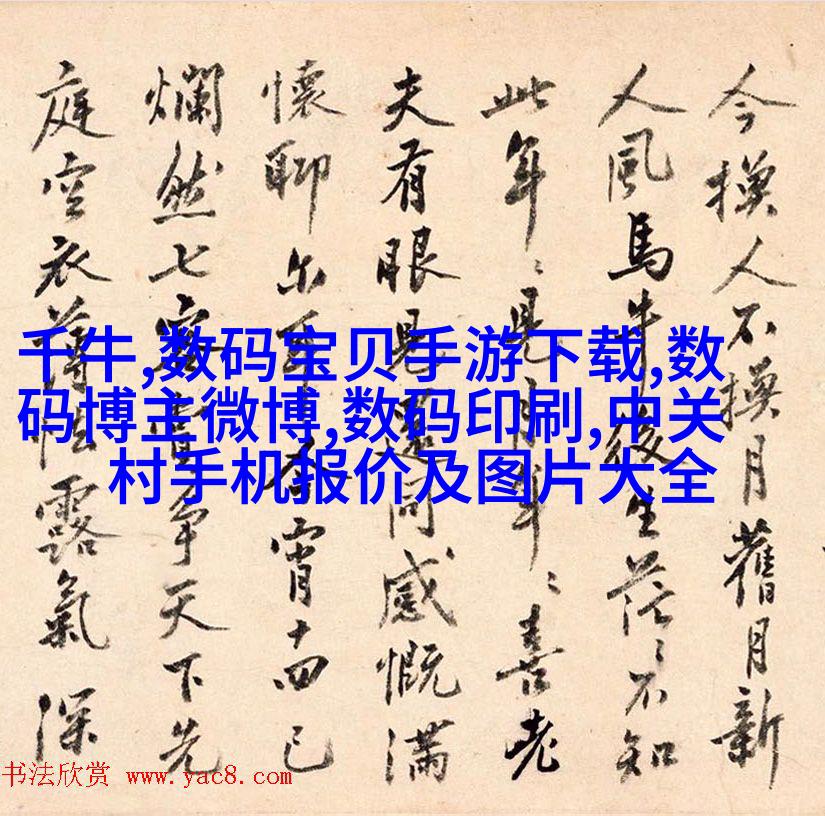 今換人不換月舊月新
人風馬牛後生茫〻不知
此年〻見月年〻喜老
夫有眼同感慨滿
懷聊尔宵十四已
爛然七爭天下先
庭空衣薄露氣深
千牛,数码宝贝手游下载,数
码博主微博,数码印刷,中关
村手机报价及图片大全
书法欣赏 www.yac8.com